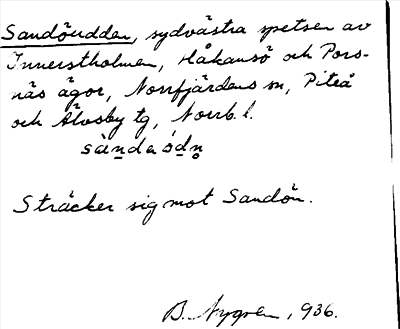 Sandöudden, sydvästra spetsen av
Innerstholmen, Håkansö och Pors-
näs ägor, Norrfjärdens sn, Piteå
och Älvsby tg, Norrb. l.
sànda ódn̥
Sträcker sig mot Sandön.
B. Nygren, 1936.